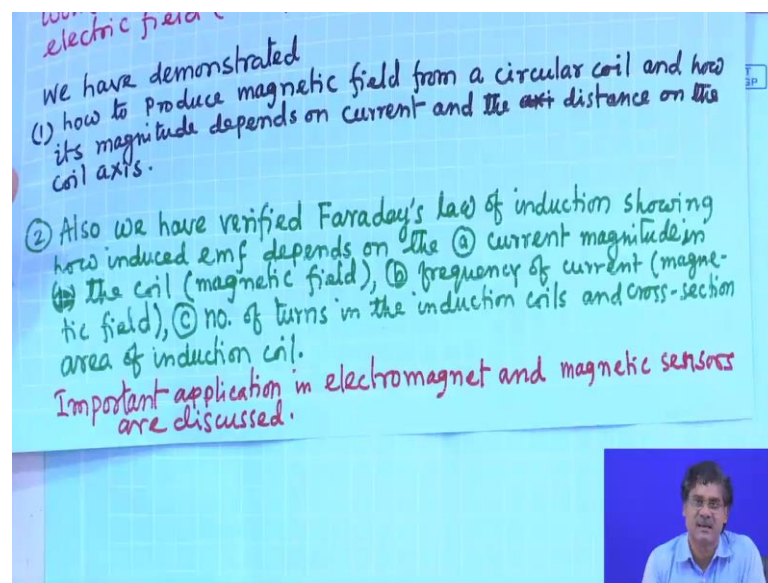 electric field (
we have demonstrated
(1) how to produce magnetic field from a circular coil and how
its magnitude depends on current and the distance on the
coil axis.
② Also we have verified Faraday's law of induction showing
how induced emf depends on the ⓐ current magnitude in
the coil (magnetic field), ⓑ frequency of current (magne-
tic field), ⓒ no. of turns in the induction coils and cross-section
area of induction coil.
Important application in electromagnet and magnetic sensors
are discussed.
GP